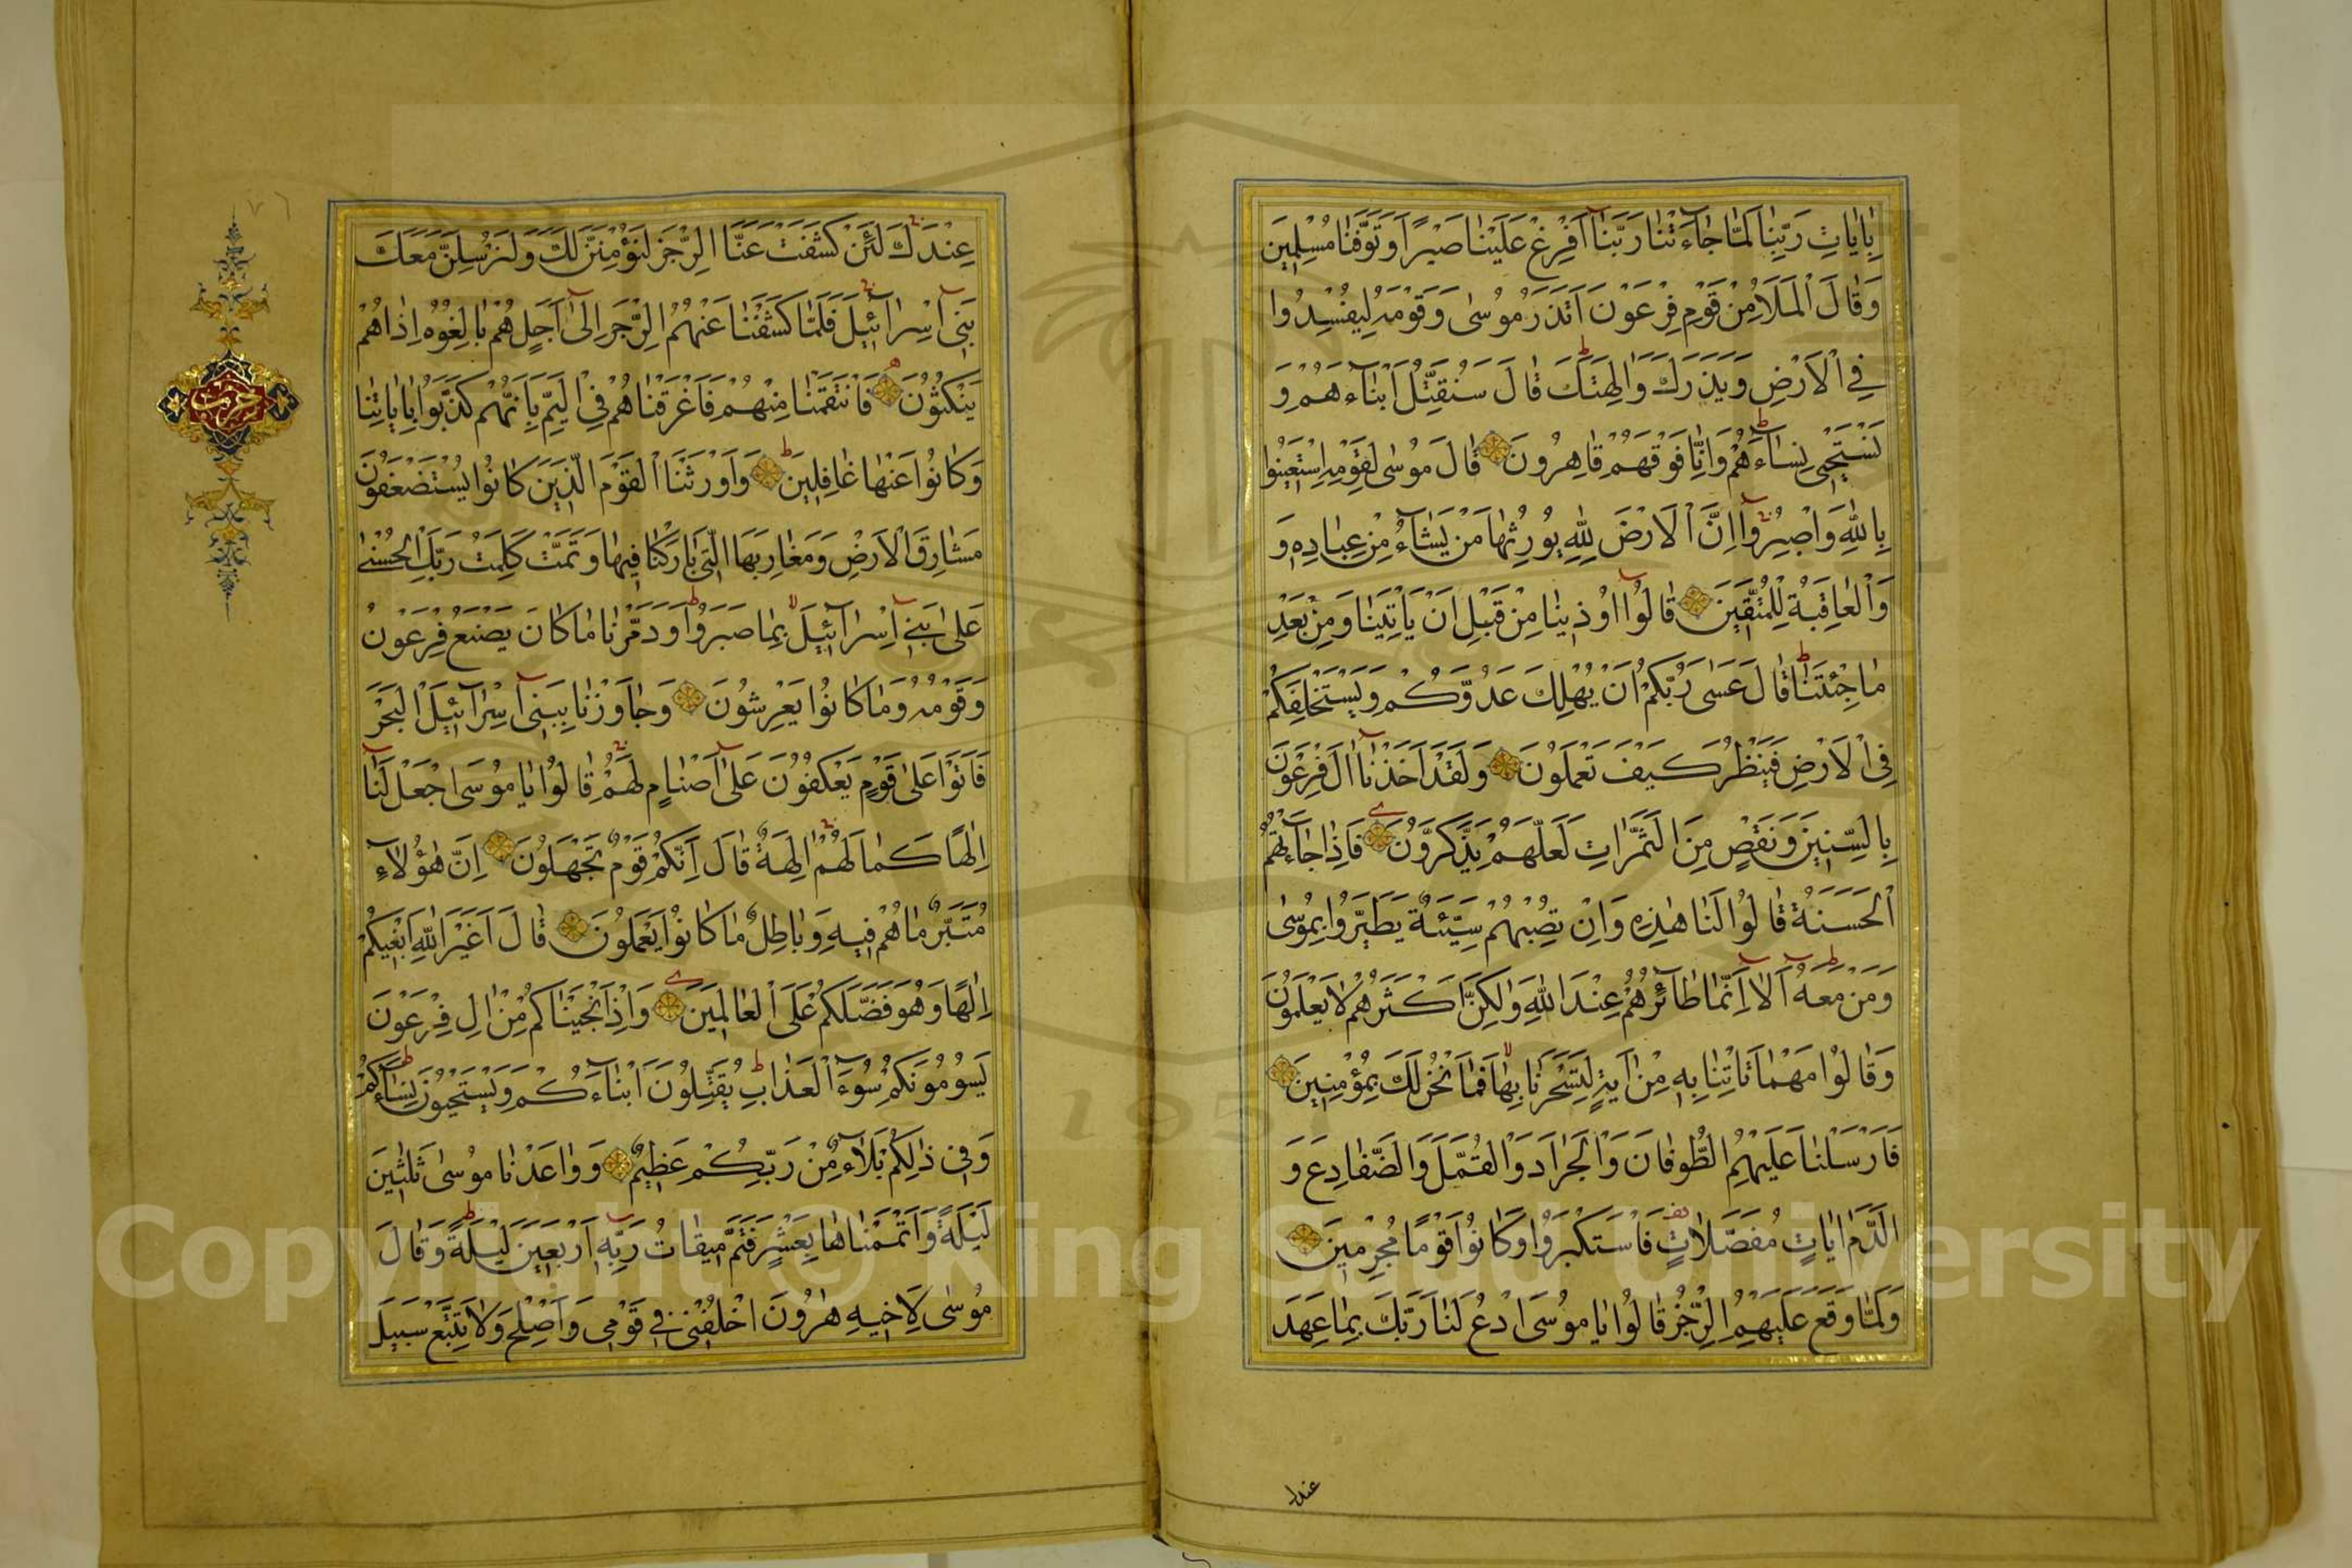 بِاٰيَاتِ رَبِّنَا لَمَّا جَاءَتْنَا رَبَّنَا اَفْرِغْ عَلَيْنَا صَبْرًا وَتَوَفَّنَا مُسْلِمِينَ
وَقَالَ الْمَلَأُ مِنْ قَوْمِ فِرْعَوْنَ اَتَذَرُ مُوسٰى وَقَوْمَهُ لِيُفْسِدُوا
فِي الْاَرْضِ وَيَذَرَكَ وَاٰلِهَتَكَ قَالَ سَنُقَتِّلُ اَبْنَاءَهُمْ وَ
نَسْتَحْيِي نِسَاءَهُمْ وَاِنَّا فَوْقَهُمْ قَاهِرُونَ قَالَ مُوسٰى لِقَوْمِهِ اسْتَعِينُوا
بِاللّٰهِ وَاصْبِرُوا اِنَّ الْاَرْضَ لِلّٰهِ يُورِثُهَا مَنْ يَشَاءُ مِنْ عِبَادِهِ وَ
وَالْعَاقِبَةُ لِلْمُتَّقِينَ قَالُوا اُوذِينَا مِنْ قَبْلِ اَنْ يَأْتِيَنَا وَمِنْ بَعْدِ
مَا جِئْتَنَا قَالَ عَسٰى رَبُّكُمْ اَنْ يُهْلِكَ عَدُوَّكُمْ وَيَسْتَخْلِفَكُمْ
فِي الْاَرْضِ فَيَنْظُرَ كَيْفَ تَعْمَلُونَ وَلَقَدْ اَخَذْنَا اٰلَ فِرْعَوْنَ
بِالسِّنِينَ وَنَقْصٍ مِنَ الثَّمَرَاتِ لَعَلَّهُمْ يَذَّكَّرُونَ فَاِذَا جَاءَتْهُمُ
الْحَسَنَةُ قَالُوا لَنَا هٰذِهِ وَاِنْ تُصِبْهُمْ سَيِّئَةٌ يَطَّيَّرُوا بِمُوسٰى
وَمَنْ مَعَهُ اَلَا اِنَّمَا طَائِرُهُمْ عِنْدَ اللّٰهِ وَلٰكِنَّ اَكْثَرَهُمْ لَا يَعْلَمُونَ
وَقَالُوا مَهْمَا تَأْتِنَا بِهِ مِنْ اٰيَةٍ لِتَسْحَرَنَا بِهَا فَمَا نَحْنُ لَكَ بِمُؤْمِنِينَ
فَاَرْسَلْنَا عَلَيْهِمُ الطُّوفَانَ وَالْجَرَادَ وَالْقُمَّلَ وَالضَّفَادِعَ وَ
الدَّمَ اٰيَاتٍ مُفَصَّلَاتٍ فَاسْتَكْبَرُوا وَكَانُوا قَوْمًا مُجْرِمِينَ
وَلَمَّا وَقَعَ عَلَيْهِمُ الرِّجْزُ قَالُوا يَا مُوسَى ادْعُ لَنَا رَبَّكَ بِمَا عَهِدَ
عندك
عِنْدَكَ لَئِنْ كَشَفْتَ عَنَّا الرِّجْزَ لَنُؤْمِنَنَّ لَكَ وَلَنُرْسِلَنَّ مَعَكَ
بَنِي اِسْرَائِيلَ فَلَمَّا كَشَفْنَا عَنْهُمُ الرِّجْزَ اِلٰى اَجَلٍ هُمْ بَالِغُوهُ اِذَا هُمْ
يَنْكُثُونَ فَانْتَقَمْنَا مِنْهُمْ فَاَغْرَقْنَاهُمْ فِي الْيَمِّ بِاَنَّهُمْ كَذَّبُوا بِاٰيَاتِنَا
وَكَانُوا عَنْهَا غَافِلِينَ وَاَوْرَثْنَا الْقَوْمَ الَّذِينَ كَانُوا يُسْتَضْعَفُونَ
مَشَارِقَ الْاَرْضِ وَمَغَارِبَهَا الَّتِي بَارَكْنَا فِيهَا وَتَمَّتْ كَلِمَتُ رَبِّكَ الْحُسْنٰى
عَلٰى بَنِي اِسْرَائِيلَ بِمَا صَبَرُوا وَدَمَّرْنَا مَا كَانَ يَصْنَعُ فِرْعَوْنُ
وَقَوْمُهُ وَمَا كَانُوا يَعْرِشُونَ وَجَاوَزْنَا بِبَنِي اِسْرَائِيلَ الْبَحْرَ
فَاَتَوْا عَلٰى قَوْمٍ يَعْكُفُونَ عَلٰى اَصْنَامٍ لَهُمْ قَالُوا يَا مُوسَى اجْعَلْ لَنَا
اِلٰهًا كَمَا لَهُمْ اٰلِهَةٌ قَالَ اِنَّكُمْ قَوْمٌ تَجْهَلُونَ اِنَّ هٰؤُلَاءِ
مُتَبَّرٌ مَا هُمْ فِيهِ وَبَاطِلٌ مَا كَانُوا يَعْمَلُونَ قَالَ اَغَيْرَ اللّٰهِ اَبْغِيكُمْ
اِلٰهًا وَهُوَ فَضَّلَكُمْ عَلَى الْعَالَمِينَ وَاِذْ اَنْجَيْنَاكُمْ مِنْ اٰلِ فِرْعَوْنَ
يَسُومُونَكُمْ سُوءَ الْعَذَابِ يُقَتِّلُونَ اَبْنَاءَكُمْ وَيَسْتَحْيُونَ نِسَاءَكُمْ
وَفِي ذٰلِكُمْ بَلَاءٌ مِنْ رَبِّكُمْ عَظِيمٌ وَوَاعَدْنَا مُوسٰى ثَلٰثِينَ
لَيْلَةً وَاَتْمَمْنَاهَا بِعَشْرٍ فَتَمَّ مِيقَاتُ رَبِّهِ اَرْبَعِينَ لَيْلَةً وَقَالَ
مُوسٰى لِاَخِيهِ هٰرُونَ اخْلُفْنِي فِي قَوْمِي وَاَصْلِحْ وَلَا تَتَّبِعْ سَبِيلَ
حزب
٧٦
Copyright © King Saud University
1957